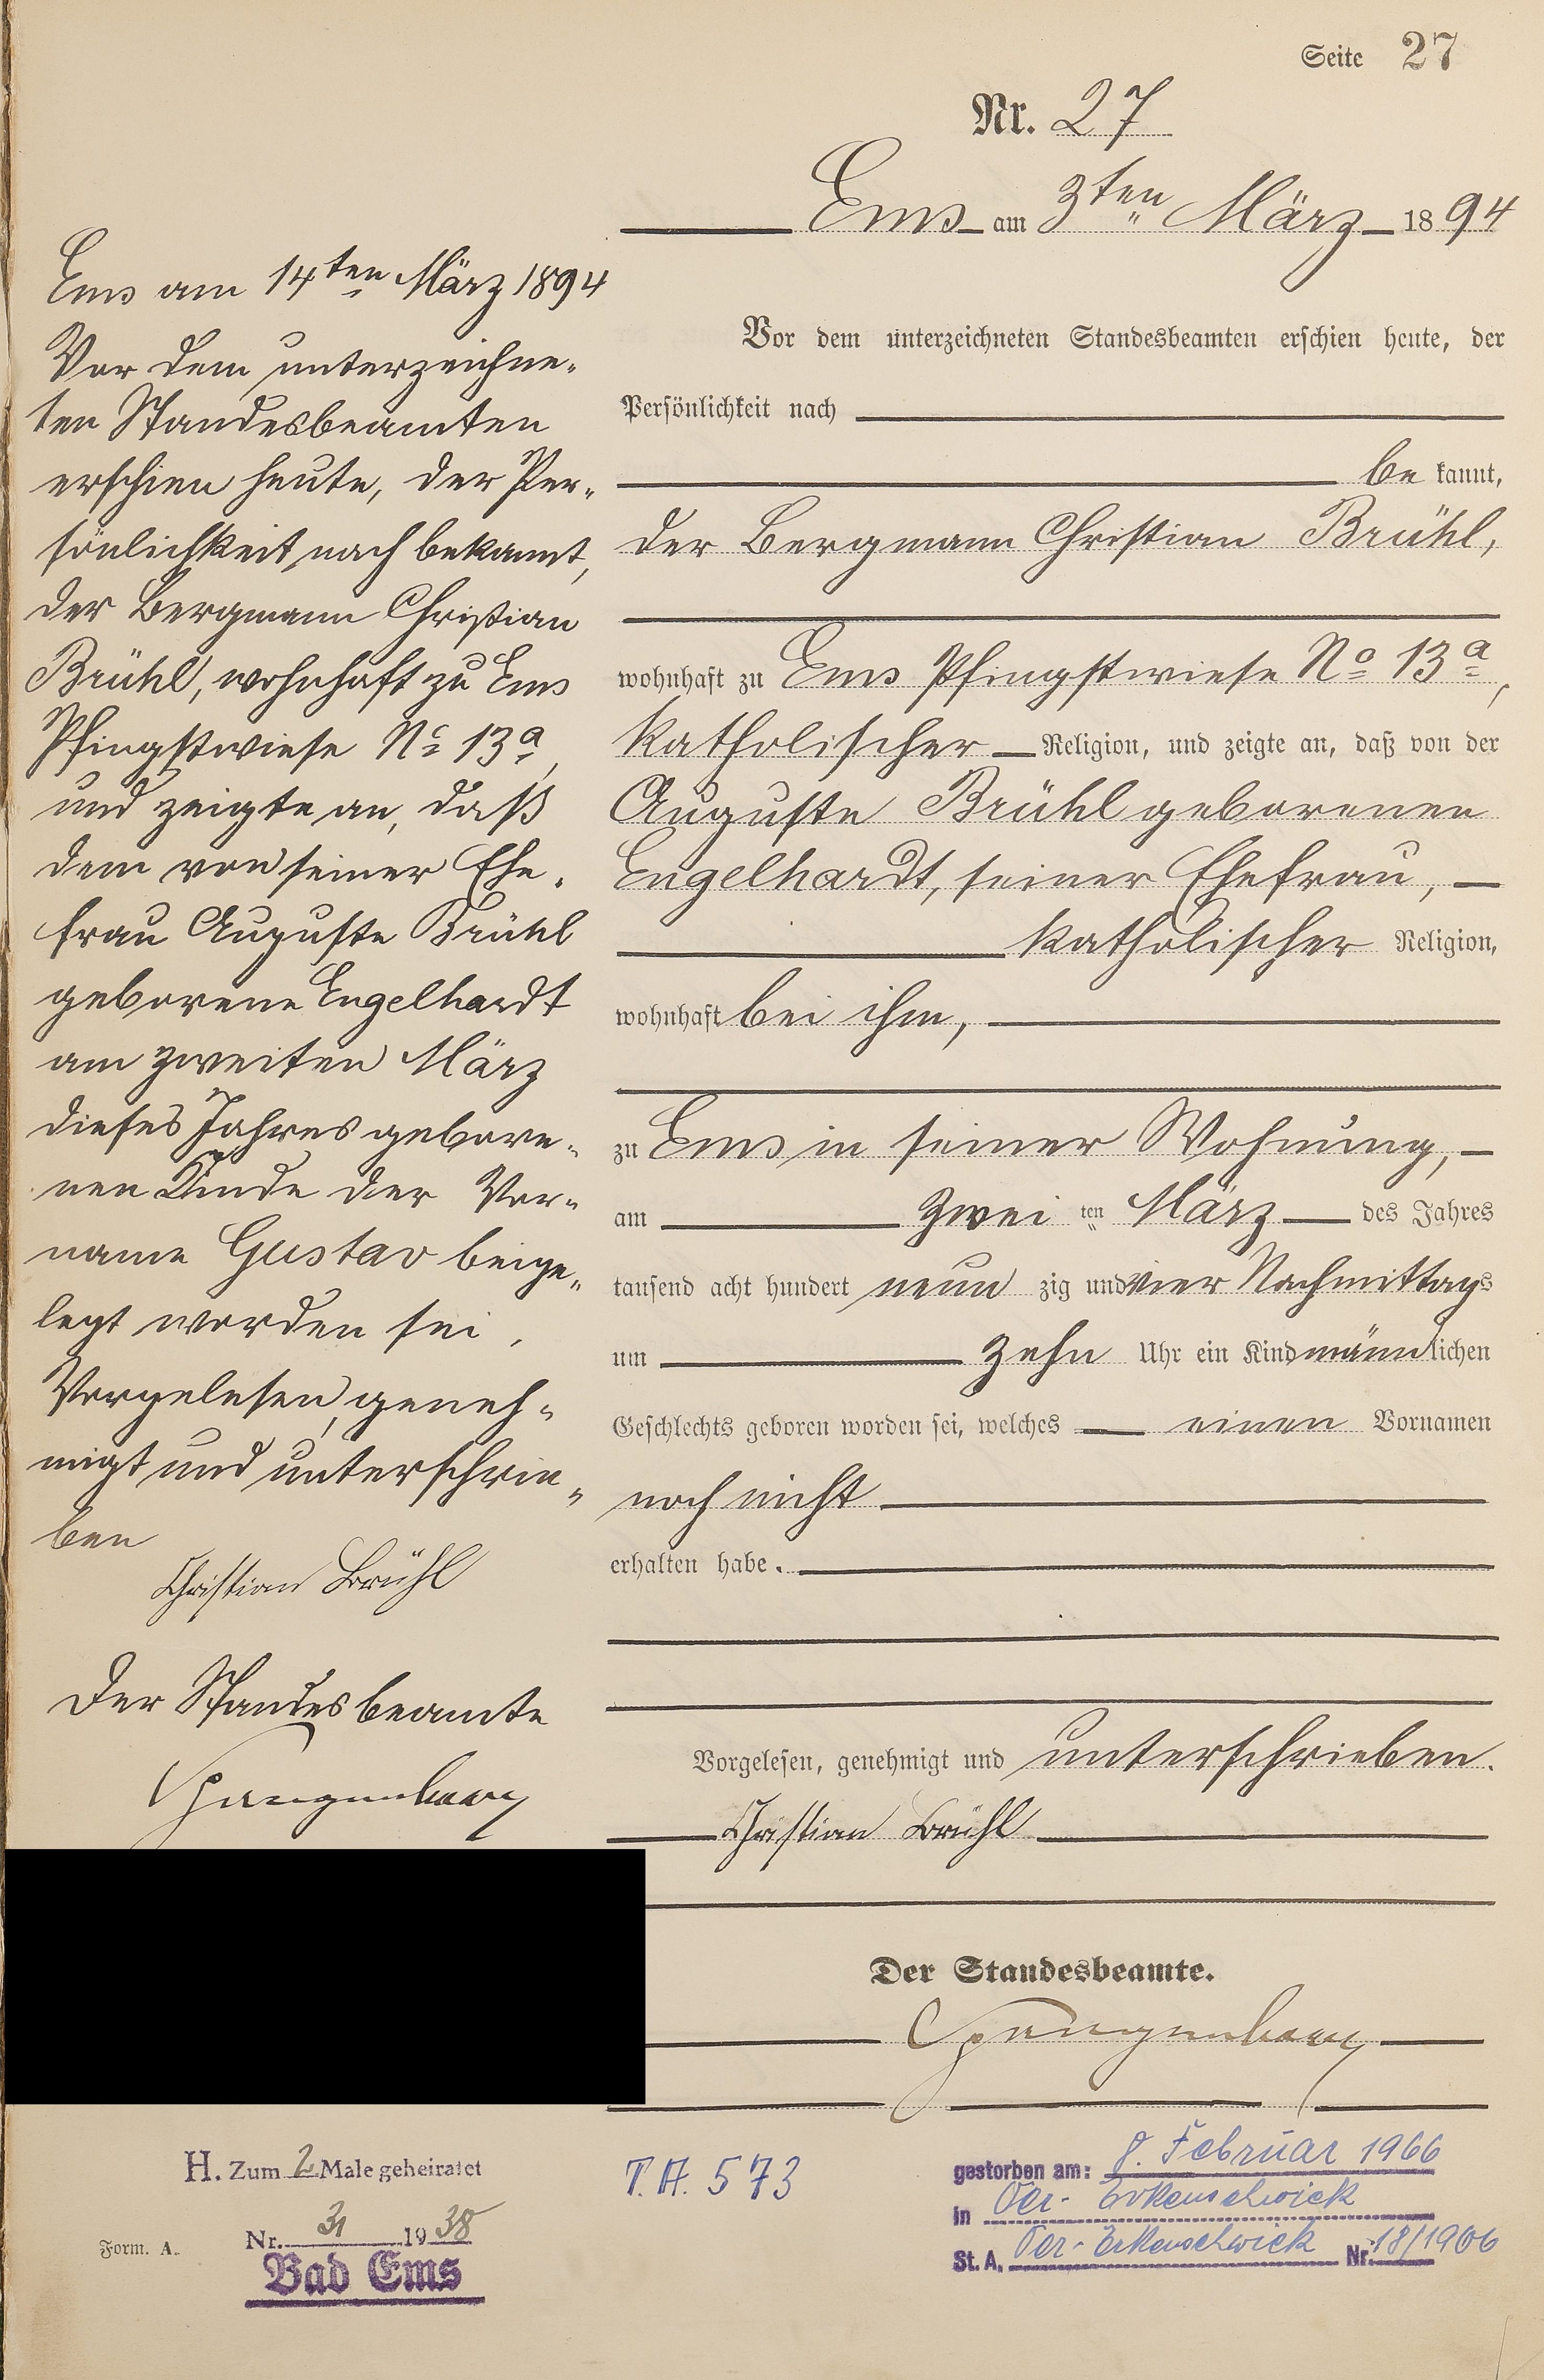 Seite 27
Nr. 27
Ems am 3ten März 1894
Vor dem unterzeichneten Standesbeamten erschien heute, der
Persönlichkeit nach
be kannt,
der Bergmann Christian Brühl,
wohnhaft zu Ems Pfingstwiese No 13a,
katholischer Religion, und zeigte an, daß von der
Auguste Brühl geborenen
Engelhardt, seiner Ehefrau,
katholischer Religion,
wohnhaft bei ihm,
zu Ems in seiner Wohnung,
am zwei ten März des Jahres
tausend acht hundert neun zig und vier Nachmittags
um zehn Uhr ein Kind männlichen
Geschlechts geboren worden sei, welches einen Vornamen
noch nicht
erhalten habe.
Vorgelesen, genehmigt und unterschrieben.
Christian Brühl
Der Standesbeamte.
Spangenberg
Ems am 14ten März 1894
Vor dem unterzeichne-
ten Standesbeamten
erschien heute, der Per-
sönlichkeit nach bekannt,
der Bergmann Christian
Brühl, wohnhaft zu Ems
Pfingstwiese No 13a,
und zeigte an, daß
dem von seiner Ehe-
frau Auguste Brühl
geborene Engelhardt
am zweiten März
dieses Jahres gebore-
nen Kinde der Vor-
name Gustav beige-
legt worden sei,
Vorgelesen, geneh-
migt und unterschrie-
ben
Christian Brühl
Der Standesbeamte
Spangenberg
H. Zum 2 Male geheiratet
Nr. 31 1938
Bad Ems
Form. A.
T.A. 573
gestorben am: 8. Februar 1966
in Oer-Erkenschwick
St. A. Oer-Erkenschwick Nr. 18/1966